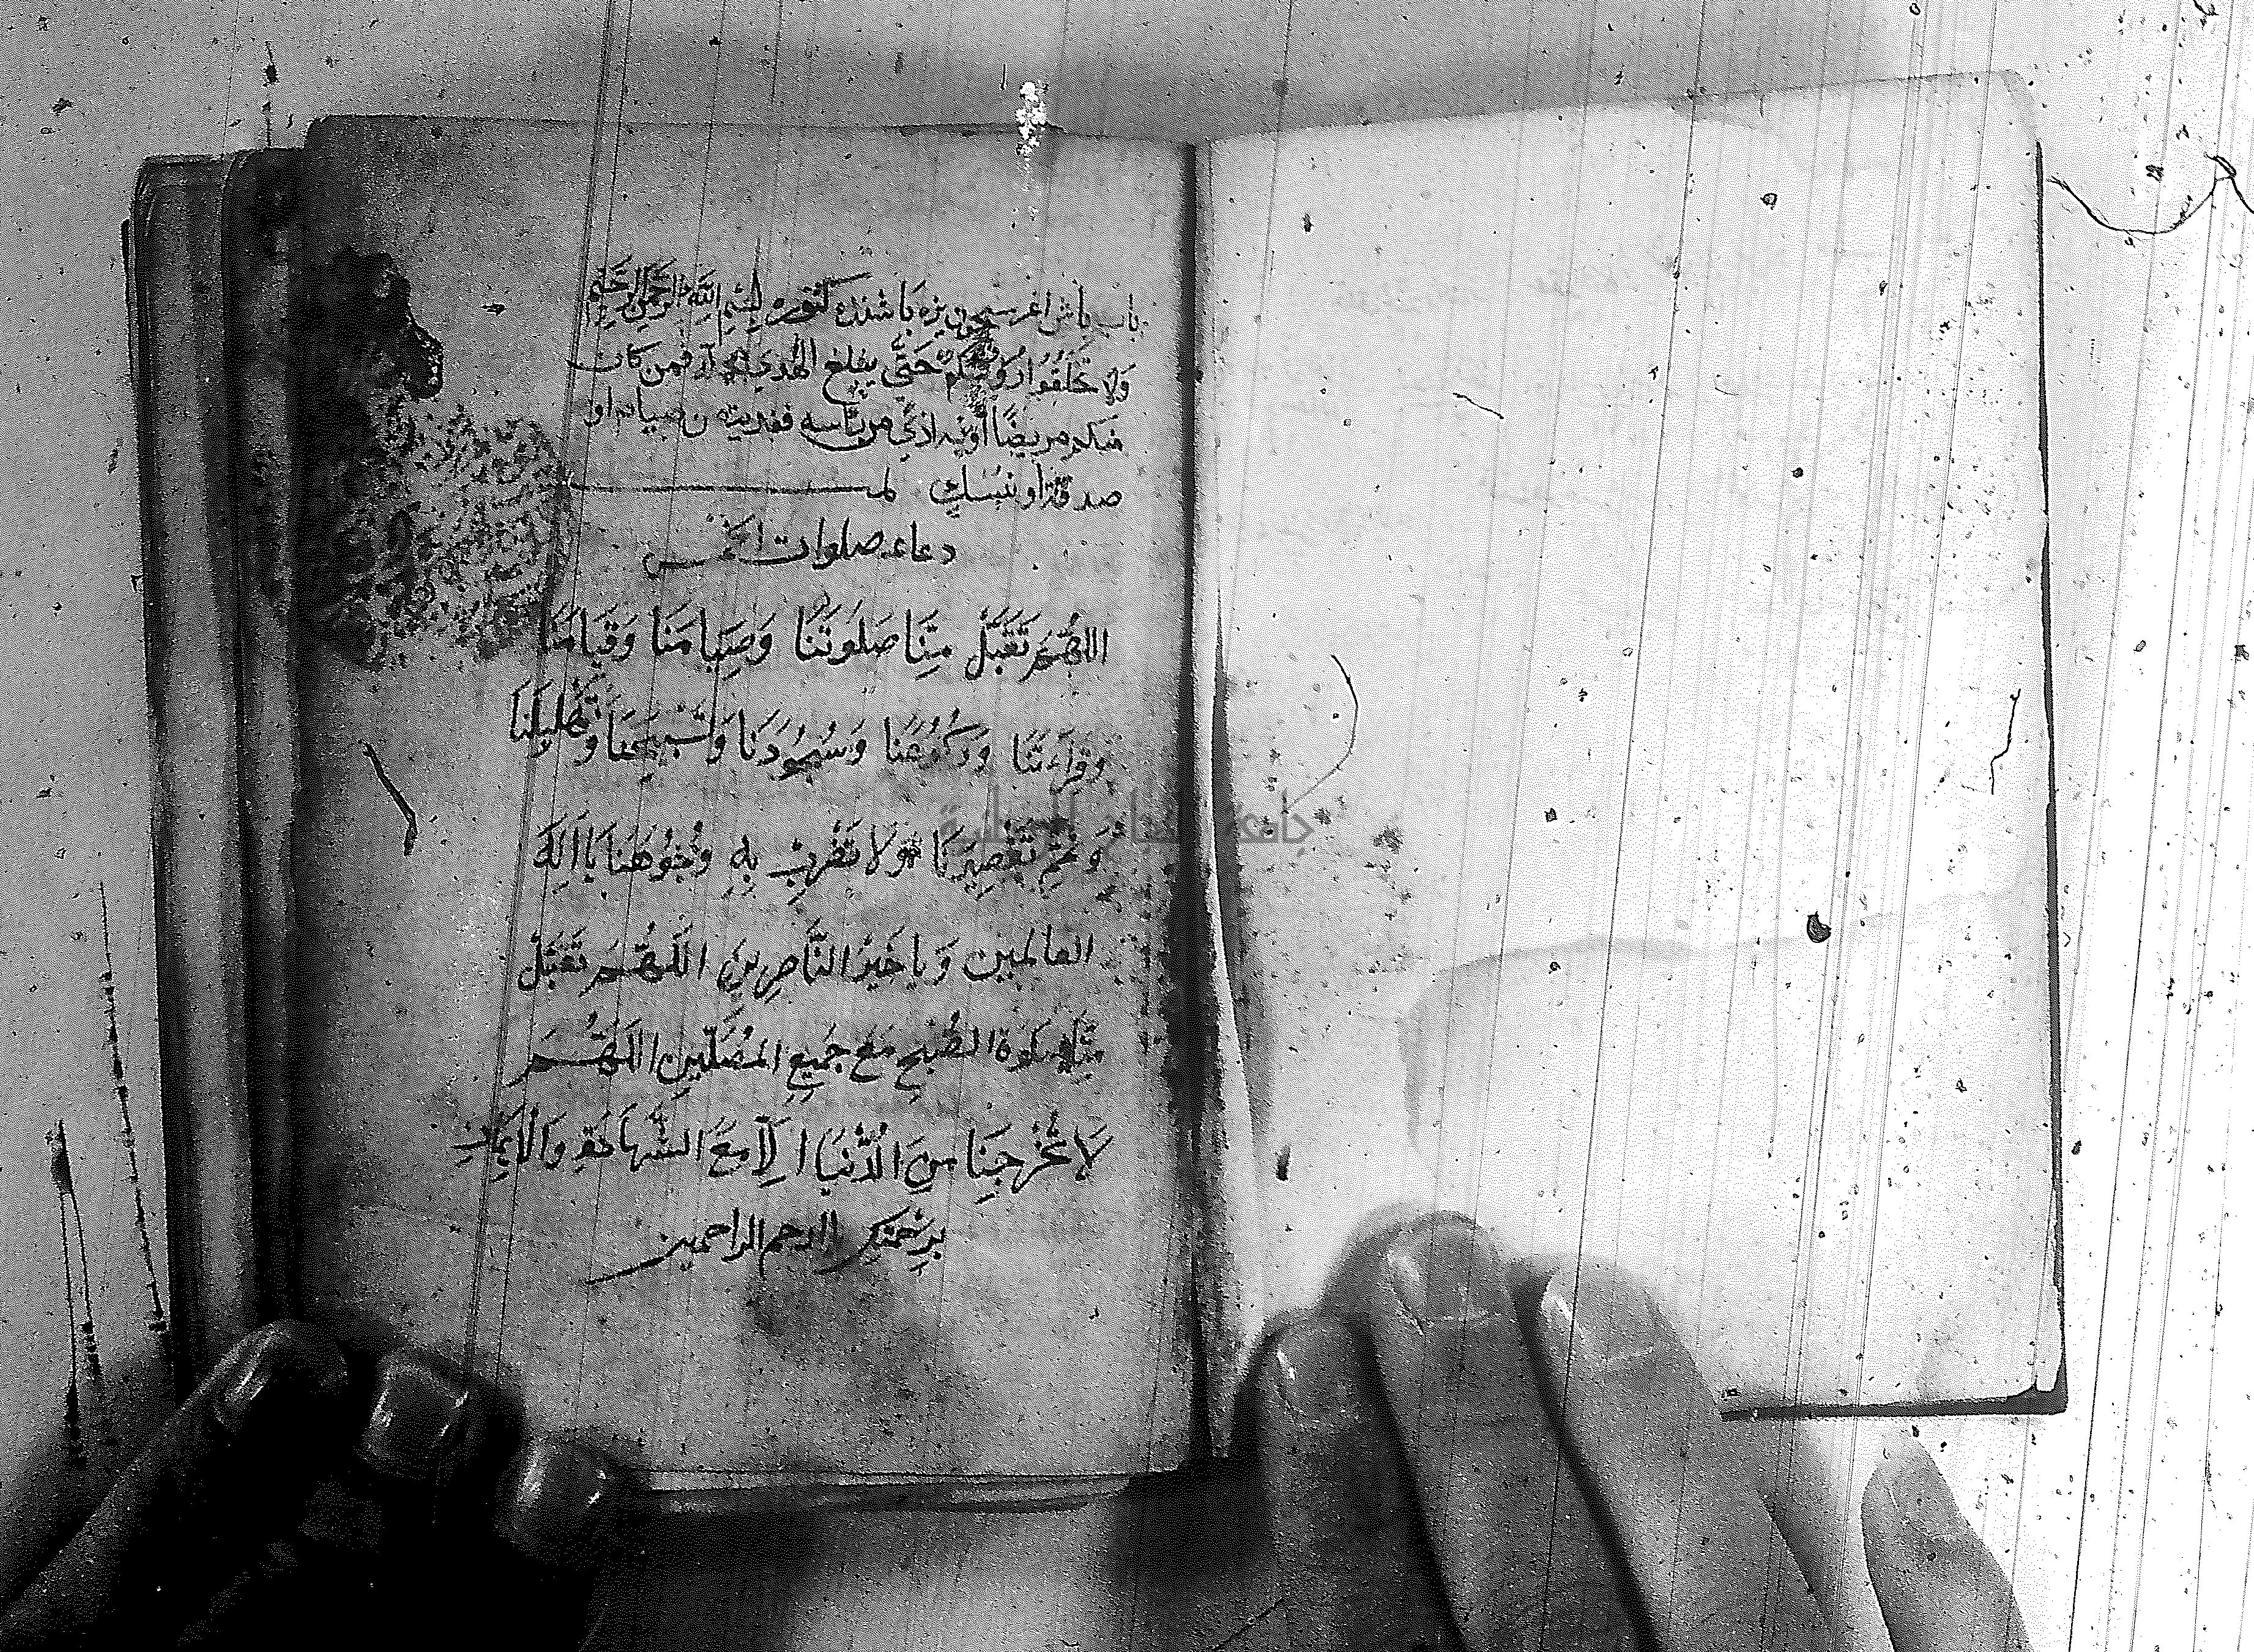 باب باش اغرسیچون یزه باشنده کتوره بِسْمِ اللّٰهِ الرَّحْمٰنِ الرَّحِيمِ
وَلَا تَحْلِقُوا رُؤُسَكُمْ حَتَّى يبلغ الهدي فمن كان
منكم مريضًا أو به اذى من راسه ففدية من صيام او
صدقة او نسك
دعاء صلوات الخمس
اللهُمَّ تَقَبَّلْ مِنَّا صَلَوتَنَا وَصِيَامَنَا وَقِيَامَنَا
وَقِرَاءَتَنَا وَرُكُوعَنَا وَسُجُودَنَا وَتَسْبِيحَنَا وَتَهْلِيلَنَا
تَقْصِيرَنَا وَلَا تَضْرِبْ بِهِ وُجُوهَنَا يَا اِلٰهَ
العالمين وَيَا خَيْرَ النَّاصِرِينَ اللهُمَّ تَقَبَّلْ
صلوة الصُّبْحِ مَعَ جَمِيعِ المُصَلِّينَ اللهُمَّ
لَا تُخْرِجْنَا مِنَ الدُّنْيَا اِلَّا مَعَ الشَّهَادَةِ وَالْاِيمَانِ
بِرَحْمَتِكَ يا ارحم الراحمين